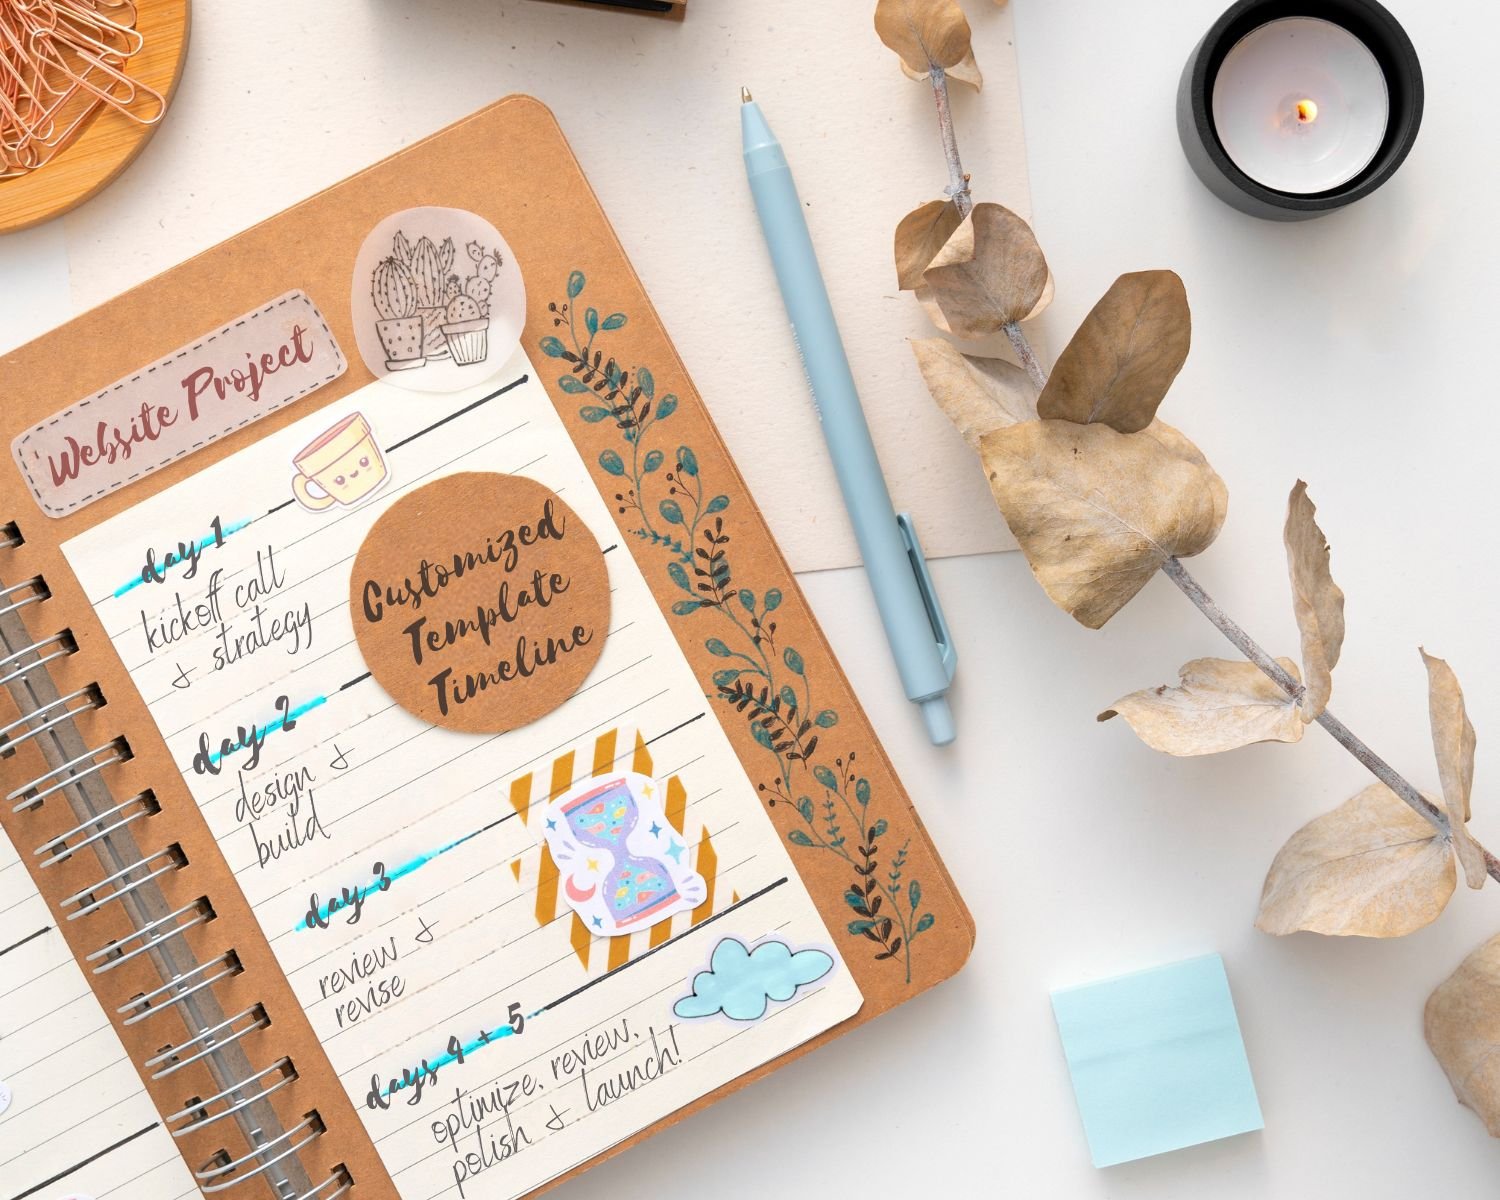 Website Project
Customized
Template
Timeline
day 1
kickoff call
+ strategy
day 2
design +
build
day 3
review +
revise
days 4 + 5
optimize, review,
polish + launch!